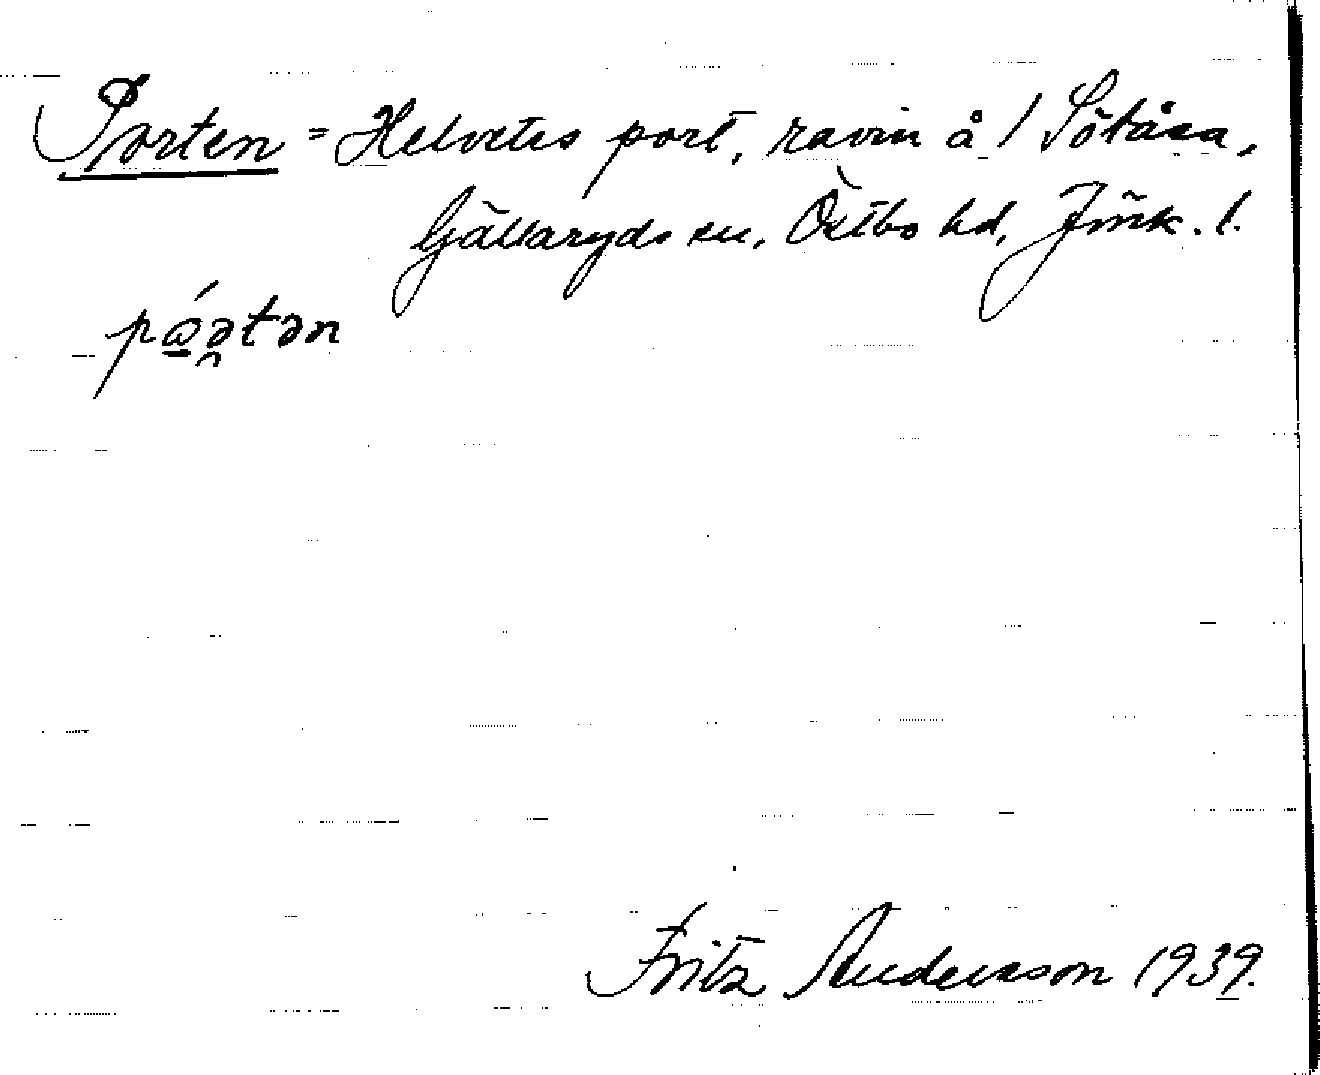 Porten = Helvetes port, ravin å / Sötåsa,
Gällaryds sn, Östbo hd, Jönk. l.
pǻə̯tən
Fritz Andersson 1939.